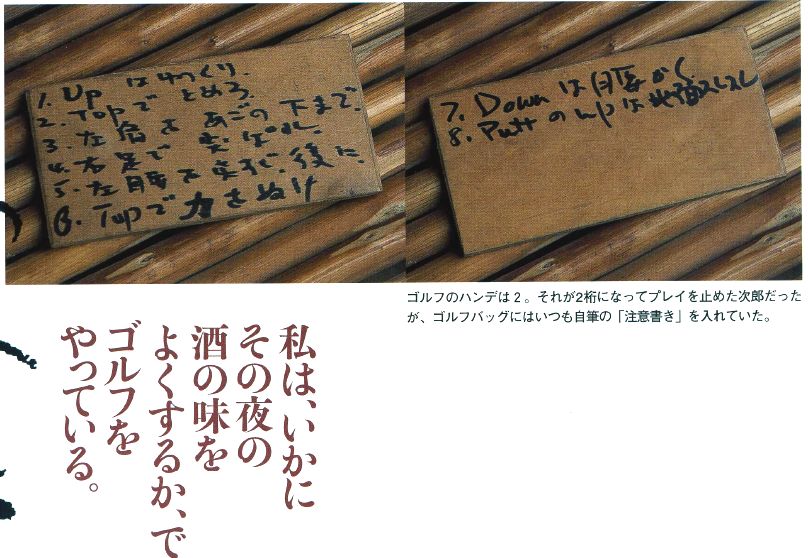 1. Up はゆっくり.
2. Topで とめろ.
3. 左肩を あごの 下まで.
4. 右足で
5. 左腰を 後に.
6. Topで 力をぬけ
7. Down は 腰から
8. Putt の upは
ゴルフのハンデは2。それが2桁になってプレイを止めた次郎だった
が、ゴルフバッグにはいつも自筆の「注意書き」を入れていた。
私は、いかに
その夜の
酒の味を
よくするか、で
ゴルフを
やっている。